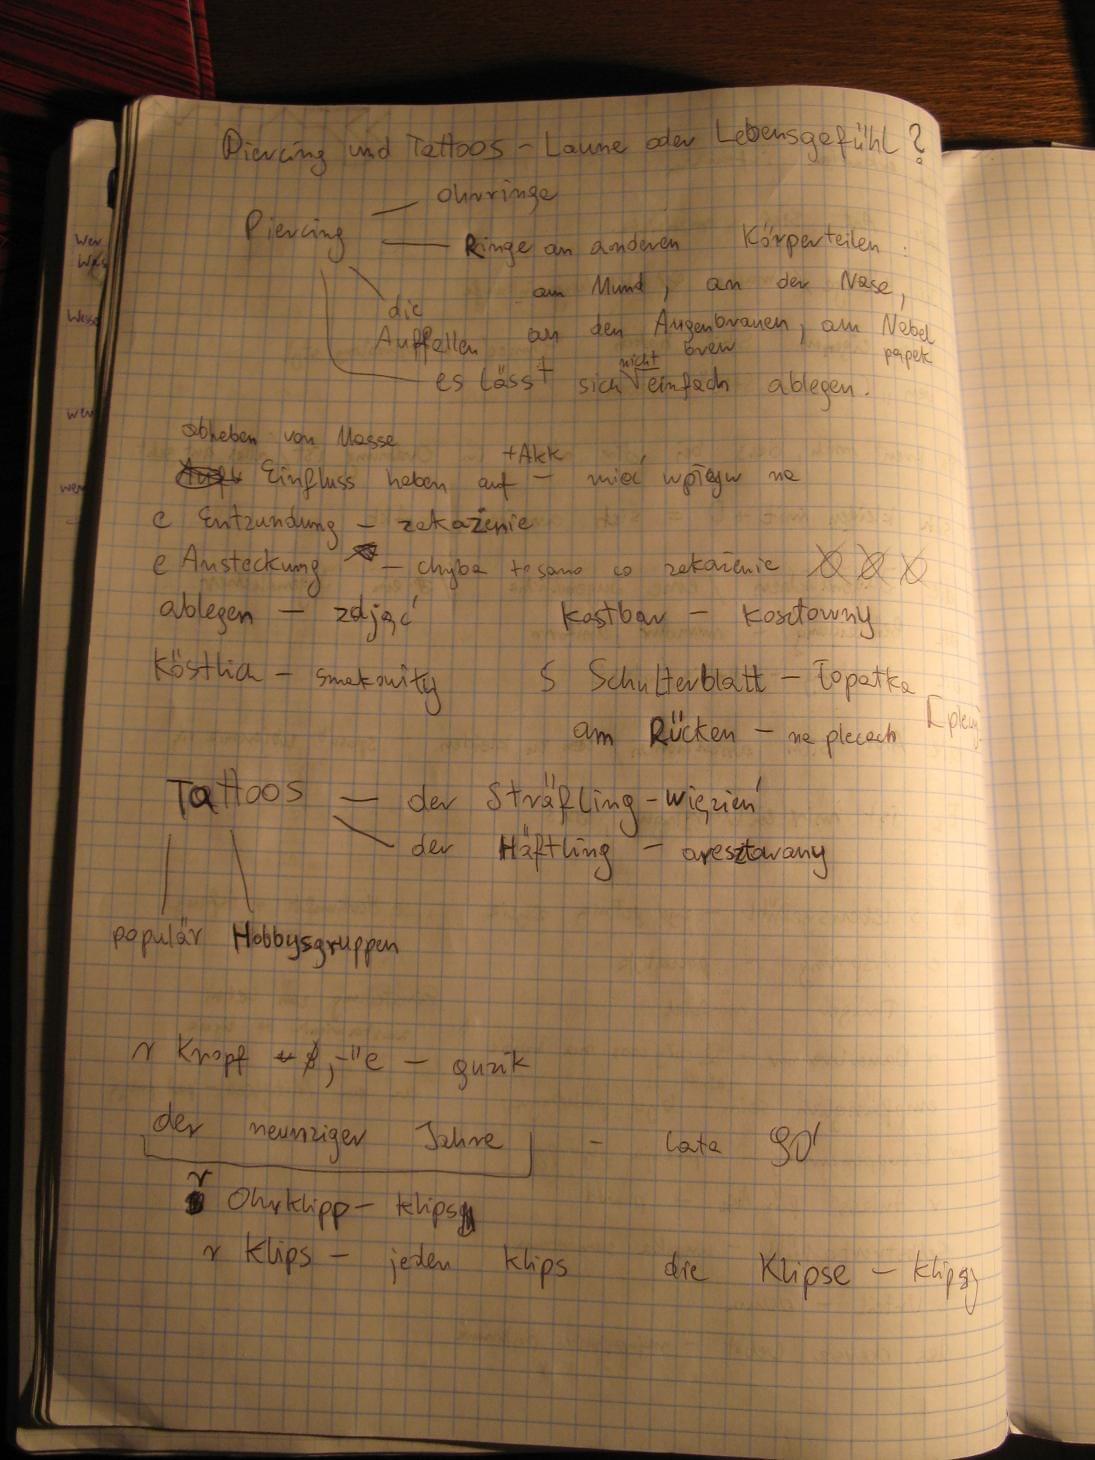 Piercing und Tattoos - Laune oder Lebensgefühl?
Ohrringe
Piercing
Ringe an anderen Körperteilen:
am Mund, an der Nase,
die
Auffallen an den Augenbrauen, am Nabel
brew pępek
nicht
es lässt sich einfach ablegen.
abheben von Masse
+Akk
Einfluss haben auf - mieć wpływ na
e Entzundung - zakażenie
e Ansteckung - chyba to samo co zakażenie
ablegen - zdjąć kostbar - kosztowny
köstlich - smakowity s Schulterblatt - łopatka
am Rücken - na plecach
Tattoos - der Sträfling - więzień
der Häftling - aresztowany
populär Hobbysgruppen
r Knopf -s, -"e - guzik
der neunziger Jahre - lata 90'
r Ohrklipp - klipsy
r Klips - jeden klips die Klipse - klipsy